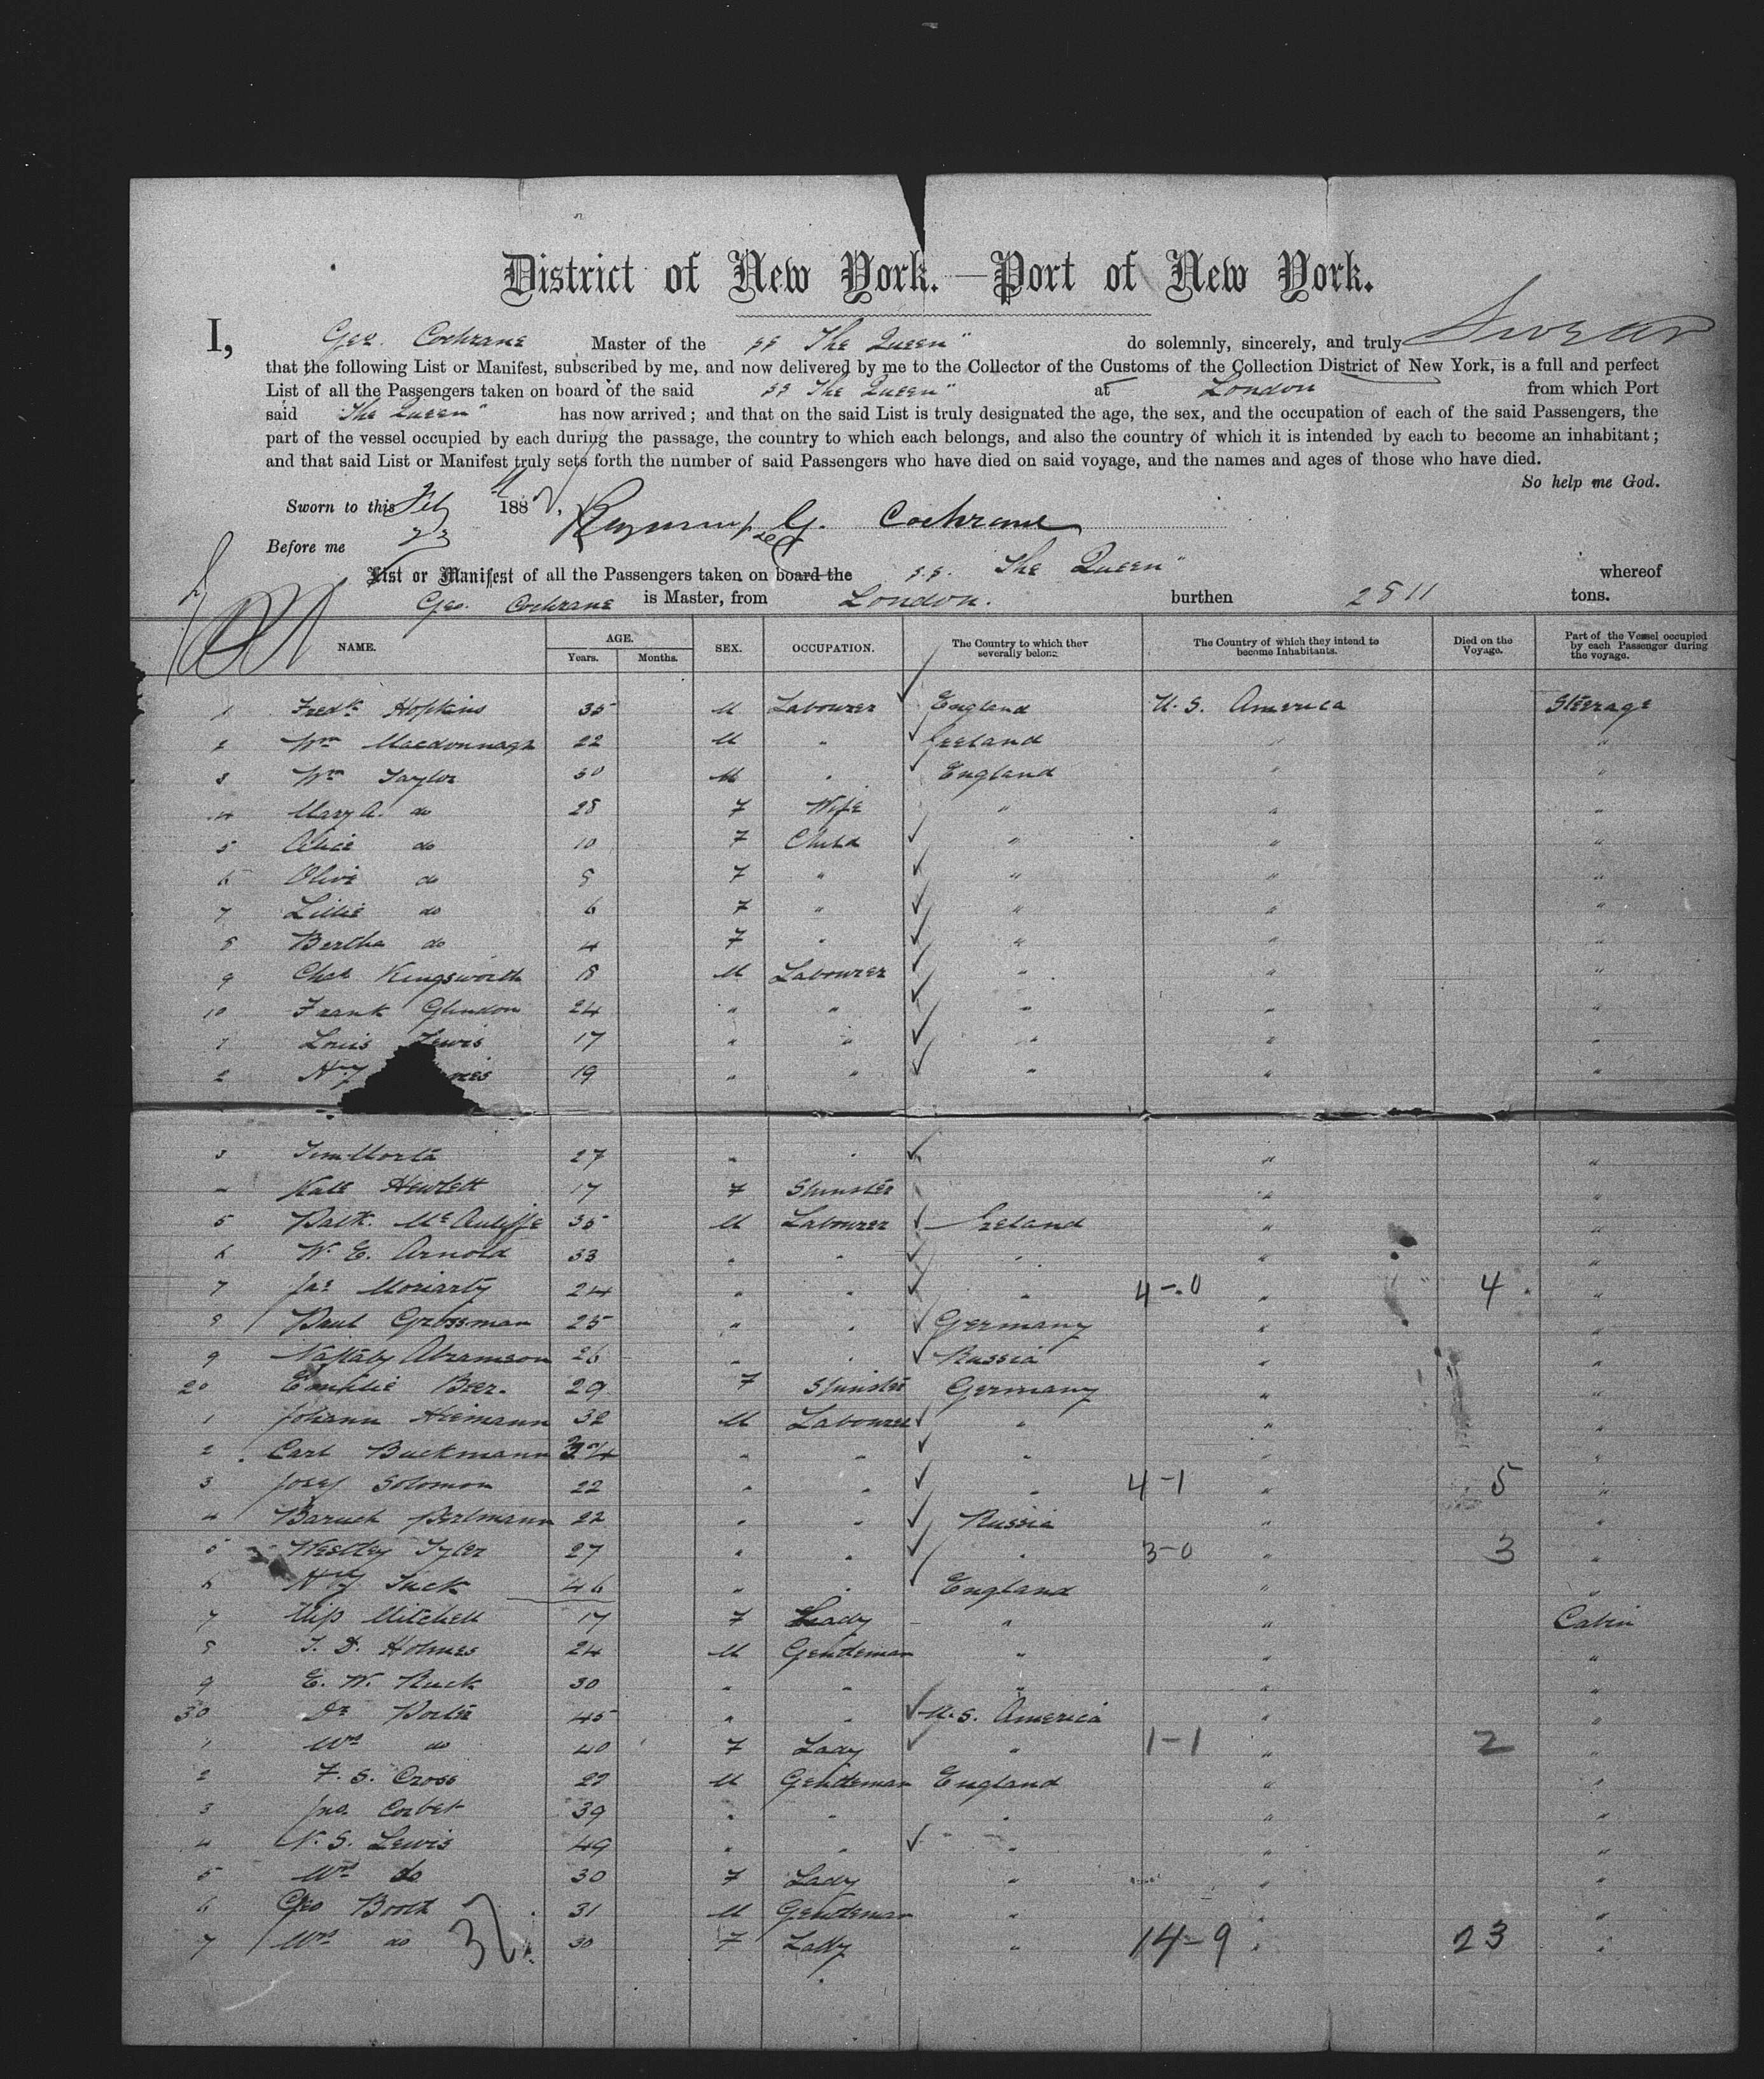 District of New York.—Port of New York.
I, Geo. Cochrane Master of the ss "The Queen" do solemnly, sincerely, and truly Swear
that the following List or Manifest, subscribed by me, and now delivered by me to the Collector of the Customs of the Collection District of New York, is a full and perfect
List of all the Passengers taken on board of the said ss "The Queen" at London from which Port
said "The Queen" has now arrived; and that on the said List is truly designated the age, the sex, and the occupation of each of the said Passengers, the
part of the vessel occupied by each during the passage, the country to which each belongs, and also the country of which it is intended by each to become an inhabitant;
and that said List or Manifest truly sets forth the number of said Passengers who have died on said voyage, and the names and ages of those who have died.
So help me God.
Sworn to this Feb 188 G. Cochrane
Before me 23
List or Manifest of all the Passengers taken on board the s.s. "The Queen" whereof
Geo. Cochrane is Master, from London. burthen 2811 tons.
NAME. AGE. Years. Months. SEX. OCCUPATION. The Country to which they severally belong. The Country of which they intend to become Inhabitants. Died on the Voyage. Part of the Vessel occupied by each Passenger during the voyage.
1 Fredk Hopkins 35 M Labourer England U.S. America Steerage
2 Wm Macdonnagh 22 M " Ireland " "
3 Wm Taylor 30 M " England " "
4 Mary A. do 28 F Wife " " "
5 Alice do 10 F Child " " "
6 Olive do 8 F " " " "
7 Lillie do 6 F " " " "
8 Bertha do 4 F " " " "
9 Chas Kingsworth 18 M Labourer " " "
10 Frank Glindon 24 " " " " "
1 Louis Lewis 17 " " " " "
2 Hy 19 " " " " "
3 27 " " " "
Kate Hewlett 17 F Spinster " "
5 Patk. McAuliffe 35 M Labourer Ireland " "
6 W. E. Arnold 33 " " " " "
7 Jas Moriarty 24 " " " 4-0 " 4 "
8 Paul Grossman 25 " " Germany " "
9 Naftaly Abramson 26 " " Russia " "
20 Emilie Beer. 29 F Spinster Germany " "
1 Johann Hiemann 32 M Labourer " " "
2 Carl Buckmann " " " " "
3 Josef Solomon 22 " " " 4-1 " 5 "
4 Baruch Perlmann 22 " " Russia " "
5 Westley Tyler 27 " " " 3-0 " 3 "
6 Hy Tuck 46 " " England " "
7 Miss Mitchell 17 F Lady " " Cabin
8 T. D. Holmes 24 M Gentleman " " "
9 E. W. Ruck 30 " " " " "
30 Dr Porter 45 " " U.S. America " "
1 Mrs do 40 F Lady " 1-1 " 2 "
2 F. S. Cross 29 M Gentleman England " "
3 Jno Corbet 39 " " " " "
4 N. S. Lewis 49 " " " " "
5 Mrs do 30 F Lady " " "
6 Geo Booth 31 M Gentleman " " "
7 Mrs do 30 F Lady " 14-9 " 23 "